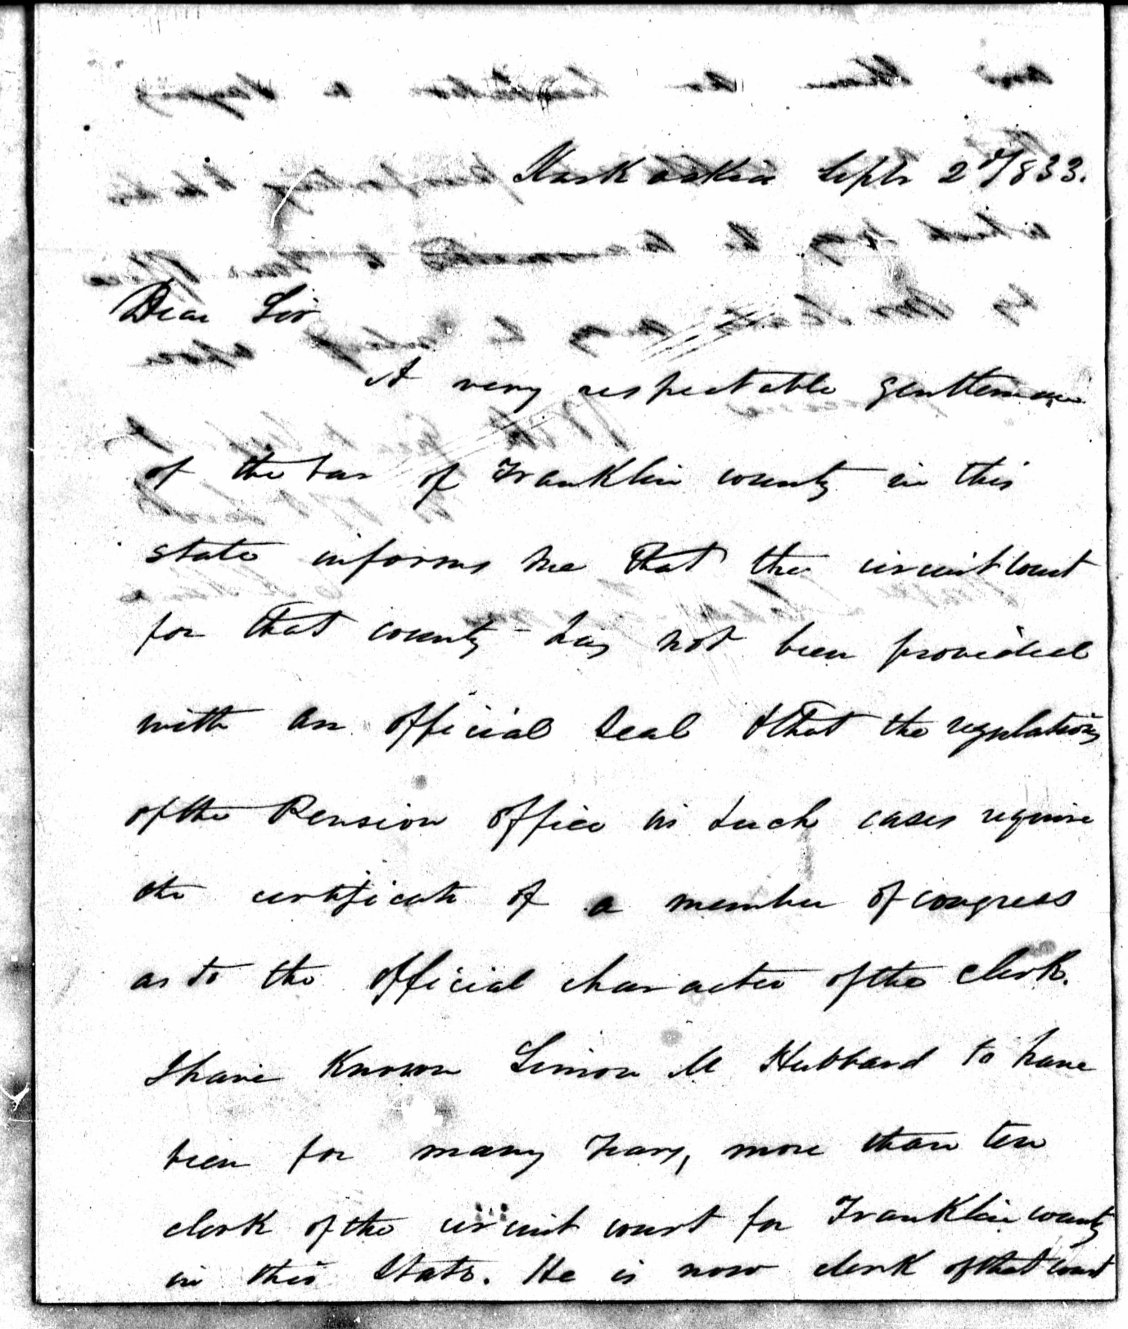 Kaskaskia Septr 2d 1833.
Dear Sir
A very respectable gentleman
of the bar of Franklin county in this
state informs me that the circuit court
for that county has not been provided
with an official seal & that the regulations
of the Pension office in such cases require
the certificate of a member of congress
as to the official character of the clerk.
I have Known Simon M Hubbard to have
been for many years, more than ten
clerk of the circuit court for Franklin county
in this State. He is now clerk of that court